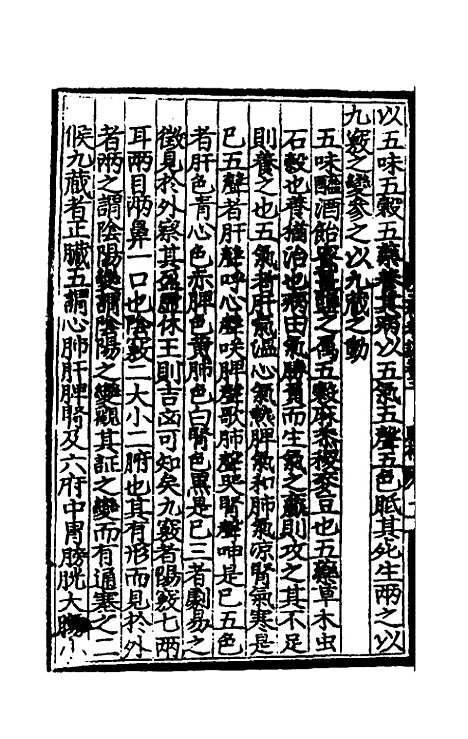 以五味五穀五藥養其病以五氣五聲五色眂其死生兩之以
九竅之變參之以九藏之動
五味醯酒飴蜜薑鹽之屬五穀麻黍稷麥豆也五藥草木虫
石穀也養猶治也病由氣勝負而生氣之羸則攻之其不足
則養之也五氣者肝氣溫心氣熱脾氣和肺氣凉腎氣寒是
已五聲者肝聲呼心聲咲脾聲歌肺聲哭腎聲呻是已五色
者肝色青心色赤脾色黄肺色白腎色黒是已三者劇易之
徵見於外察其盈虛休王則吉凶可知矣九竅者陽竅七兩
耳兩目兩鼻一口也陰竅二大小二腑也其有形而見於外
者兩之謂陰陽變謂陰陽之變觀其証之變而有通寒之二
候九藏者正臟五謂心肺肝脾腎及六府中胃膀胱大腸小